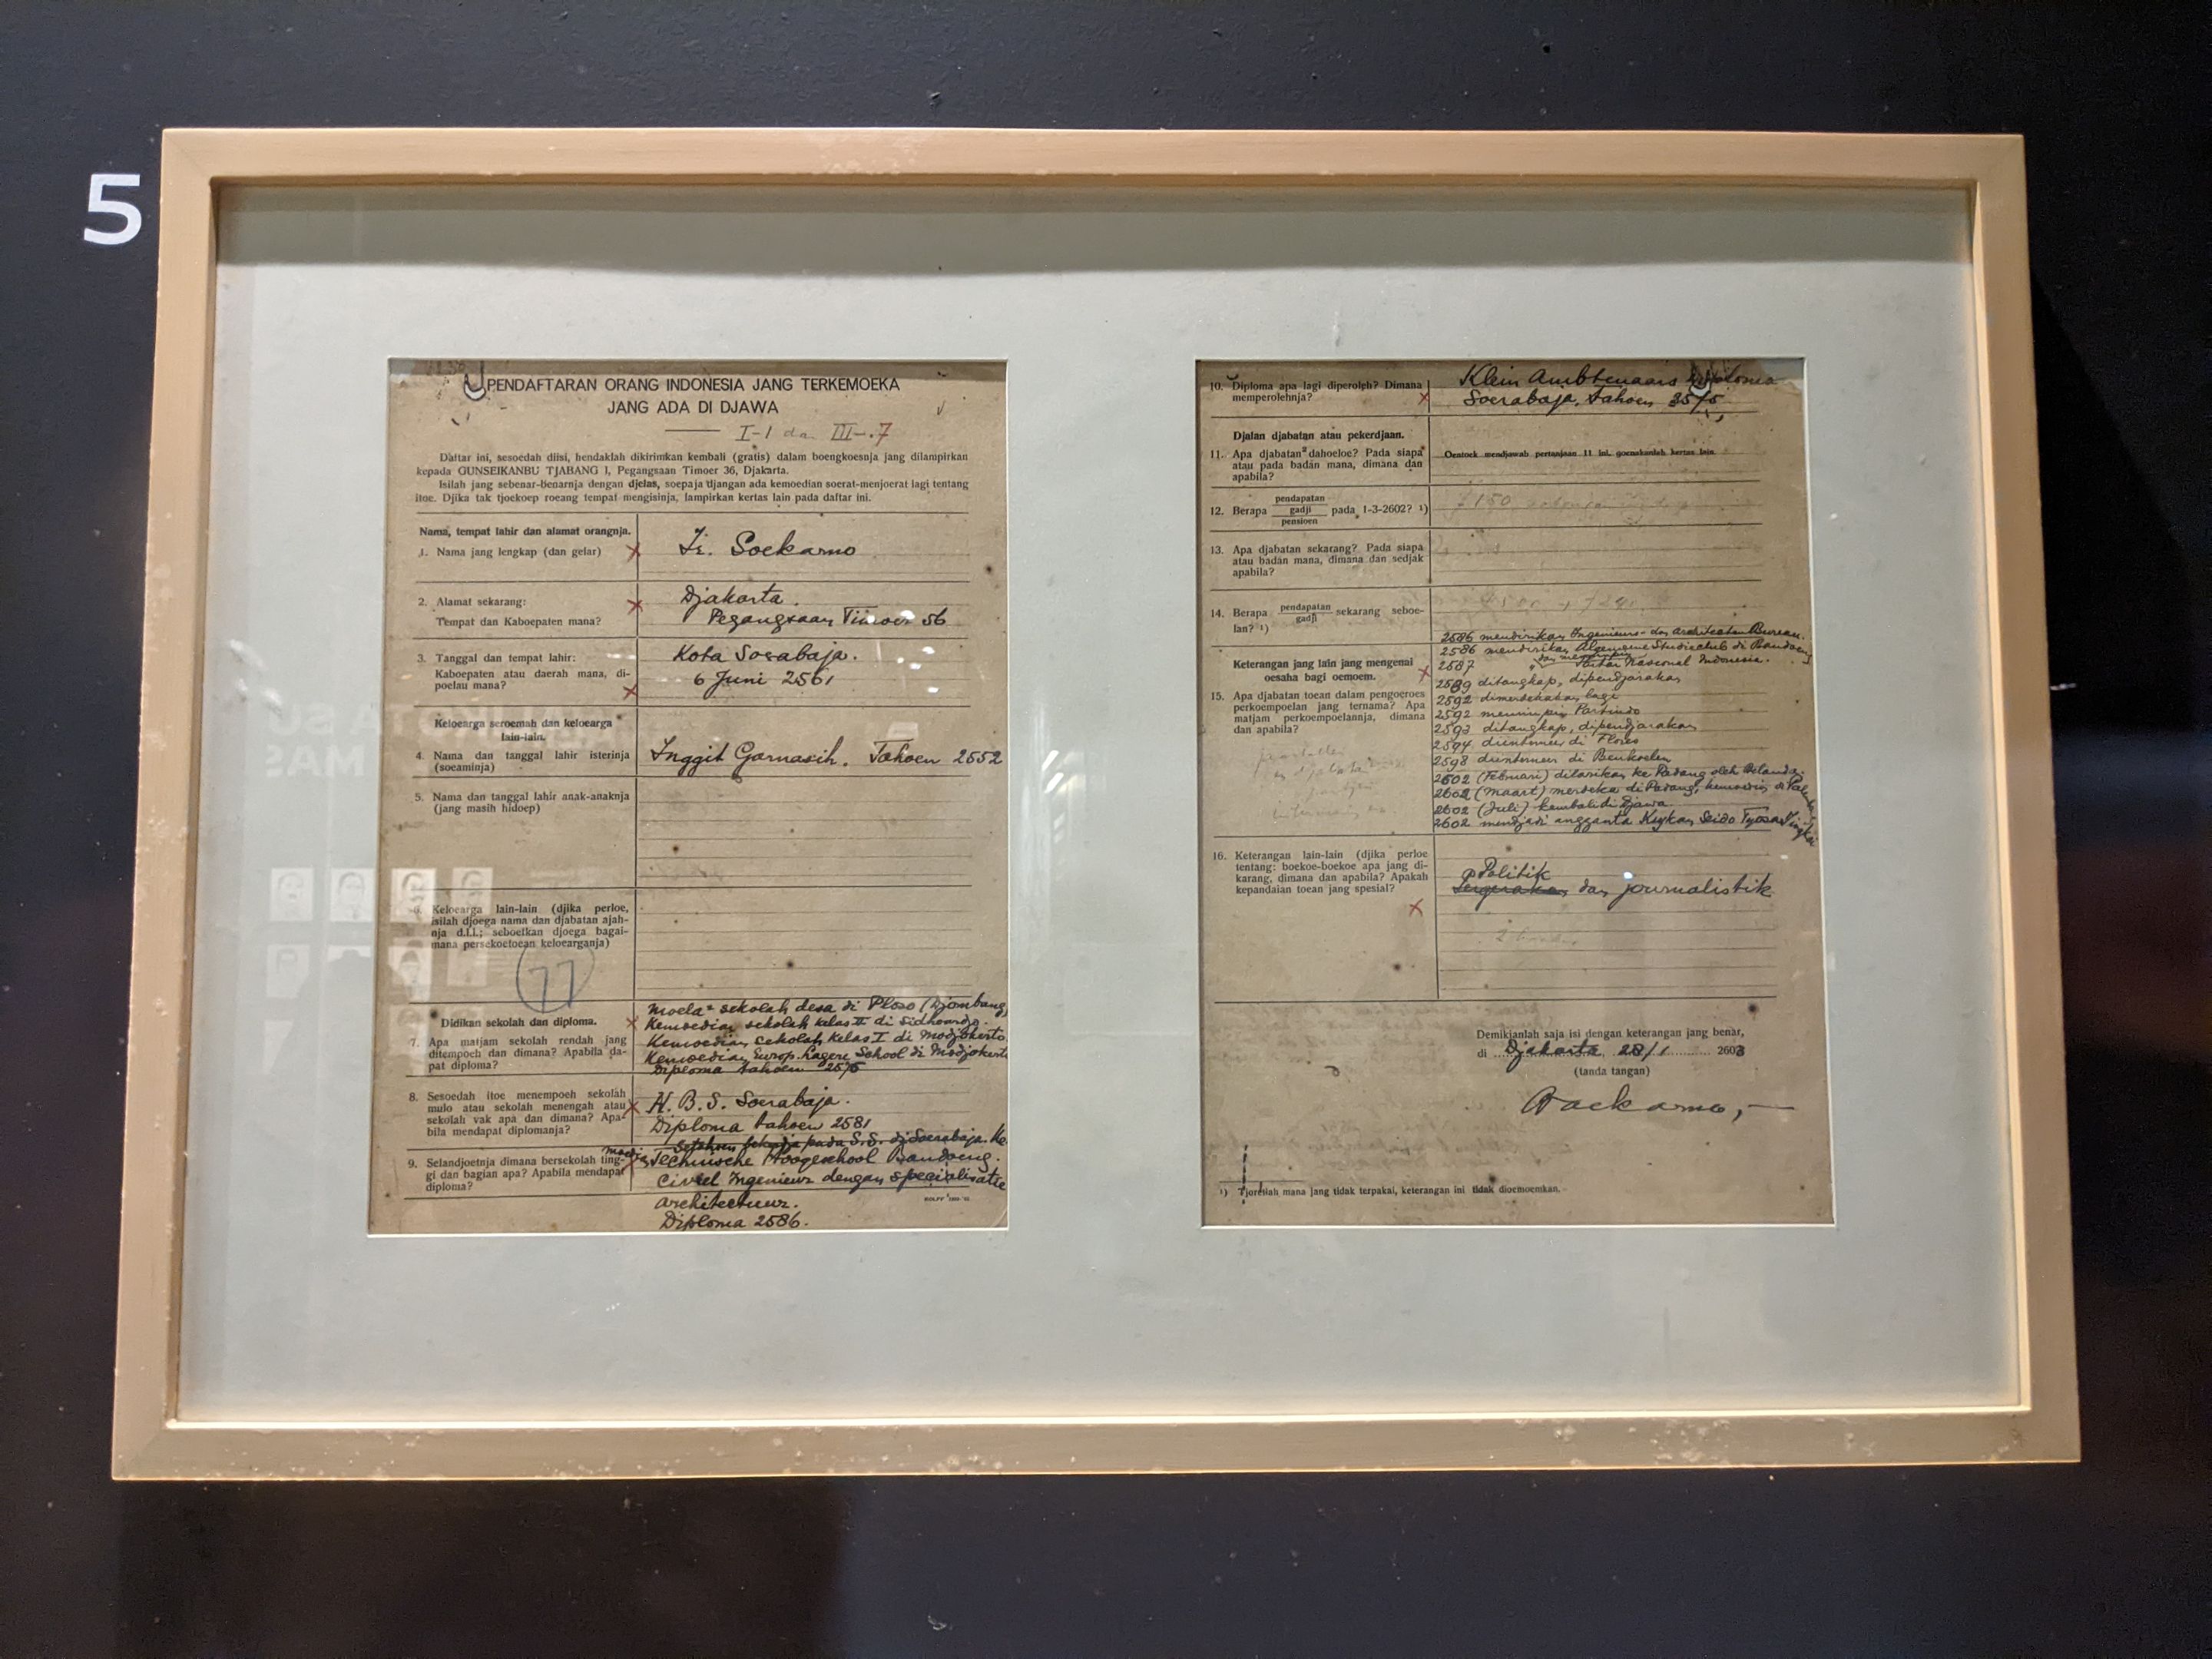 5
PENDAFTARAN ORANG INDONESIA JANG TERKEMOEKA
JANG ADA DI DJAWA
I-1 dan III-7
Daftar ini, sesoedah diisi, hendaklah dikirimkan kembali (gratis) dalam boengkoesnja jang dilampirkan
kepada GUNSEIKANBU TJABANG I, Pegangsaan Timoer 36, Djakarta.
Isilah jang sebenar-benarnja dengan djelas, soepaja djangan ada kemoedian soerat-menjoerat lagi tentang
itoe. Djika tak tjoekoep roeang tempat mengisinja, lampirkan kertas lain pada daftar ini.
Nama, tempat lahir dan alamat orangnja.
1. Nama jang lengkap (dan gelar)
Ir. Soekarno
2. Alamat sekarang:
Tempat dan Kaboepaten mana?
Djakarta.
Pegangsaan Timoer 56
3. Tanggal dan tempat lahir:
Kaboepaten atau daerah mana, di-
poelau mana?
Kota Soerabaja.
6 Juni 2561
Keloearga seroemah dan keloearga
lain-lain.
4. Nama dan tanggal lahir isterinja
(soeaminja)
Inggit Garnasih. Tahoen 2552
5. Nama dan tanggal lahir anak-anaknja
(jang masih hidoep)
6. Keloearga lain-lain (djika perloe,
isilah djoega nama dan djabatan ajah-
nja d.l.l.; seboetkan djoega bagai-
mana persekoetoean keloearganja)
77
Didikan sekolah dan diploma.
7. Apa matjam sekolah rendah jang
ditempoeh dan dimana? Apabila da-
pat diploma?
Moela² sekolah desa di Ploso (Djombang)
Kemoedian sekolah kelas II di Sidhoardjo.
Kemoedian sekolah kelas I di Modjokerto.
Kemoedian Europ. Lagere School di Modjokerto
Diploma tahoen
8. Sesoedah itoe menempoeh sekolah
mulo atau sekolah menengah atau
sekolah vak apa dan dimana? Apa-
bila mendapat diplomanja?
H.B.S. Soerabaja.
Diploma tahoen 2581
Setahoen bekerdja pada S.S. di Soerabaja. Ke
moedian
9. Selandjoetnja dimana bersekolah ting-
gi dan bagian apa? Apabila mendapat
diploma?
Technische Hoogeschool Bandoeng.
Civiel Ingenieur dengan specialisatie
architectuur.
Diploma 2586.
10. Diploma apa lagi diperoleh? Dimana
memperolehnja?
Klein Ambtenaars Diploma
Soerabaja, tahoen
Djalan djabatan atau pekerdjaan.
11. Apa djabatan² dahoeloe? Pada siapa
atau pada badan mana, dimana dan
apabila?
Oentoek mendjawab pertanjaan 11 ini, goenakanlah kertas lain.
12. Berapa pendapatan gadji pensioen pada 1-3-2602? ¹)
150
13. Apa djabatan sekarang? Pada siapa
atau badan mana, dimana dan sedjak
apabila?
14. Berapa pendapatan gadji sekarang seboe-
lan? ¹)
Keterangan jang lain jang mengenai
oesaha bagi oemoem.
15. Apa djabatan toean dalam pengoeroes
perkoempoelan jang ternama? Apa
matjam perkoempoelannja, dimana
dan apabila?
2586 mendirikan Ingenieurs- dan Architecten Bureau.
2586 mendirikan Algemeene Studieclub di Bandoeng
2587 " dan memimpin Partai Nasional Indonesia.
2589 ditangkap, dipendjarakan
2592 dimerdekakan lagi
2592 memimpin Partindo
2593 ditangkap, dipendjarakan
2594 diinterneer di Flores
2598 diinterneer di Benkoelen
2602 (Februari) dilarikan ke Padang oleh Belanda.
2602 (Maart) merdeka di Padang, kemoedian di Palembang
2602 (Juli) kembali di Djawa
2602 mendjadi anggauta Kyukan Seido Tyosa Iingkai
16. Keterangan lain-lain (djika perloe
tentang: boekoe-boekoe apa jang di-
karang, dimana dan apabila? Apakah
kepandaian toean jang spesial?
Politik
dan journalistik
Demikianlah saja isi dengan keterangan jang benar,
di Djakarta 28/1 2603
(tanda tangan)
Soekarno,—
¹) Tjoretlah mana jang tidak terpakai, keterangan ini tidak dioemoemkan.